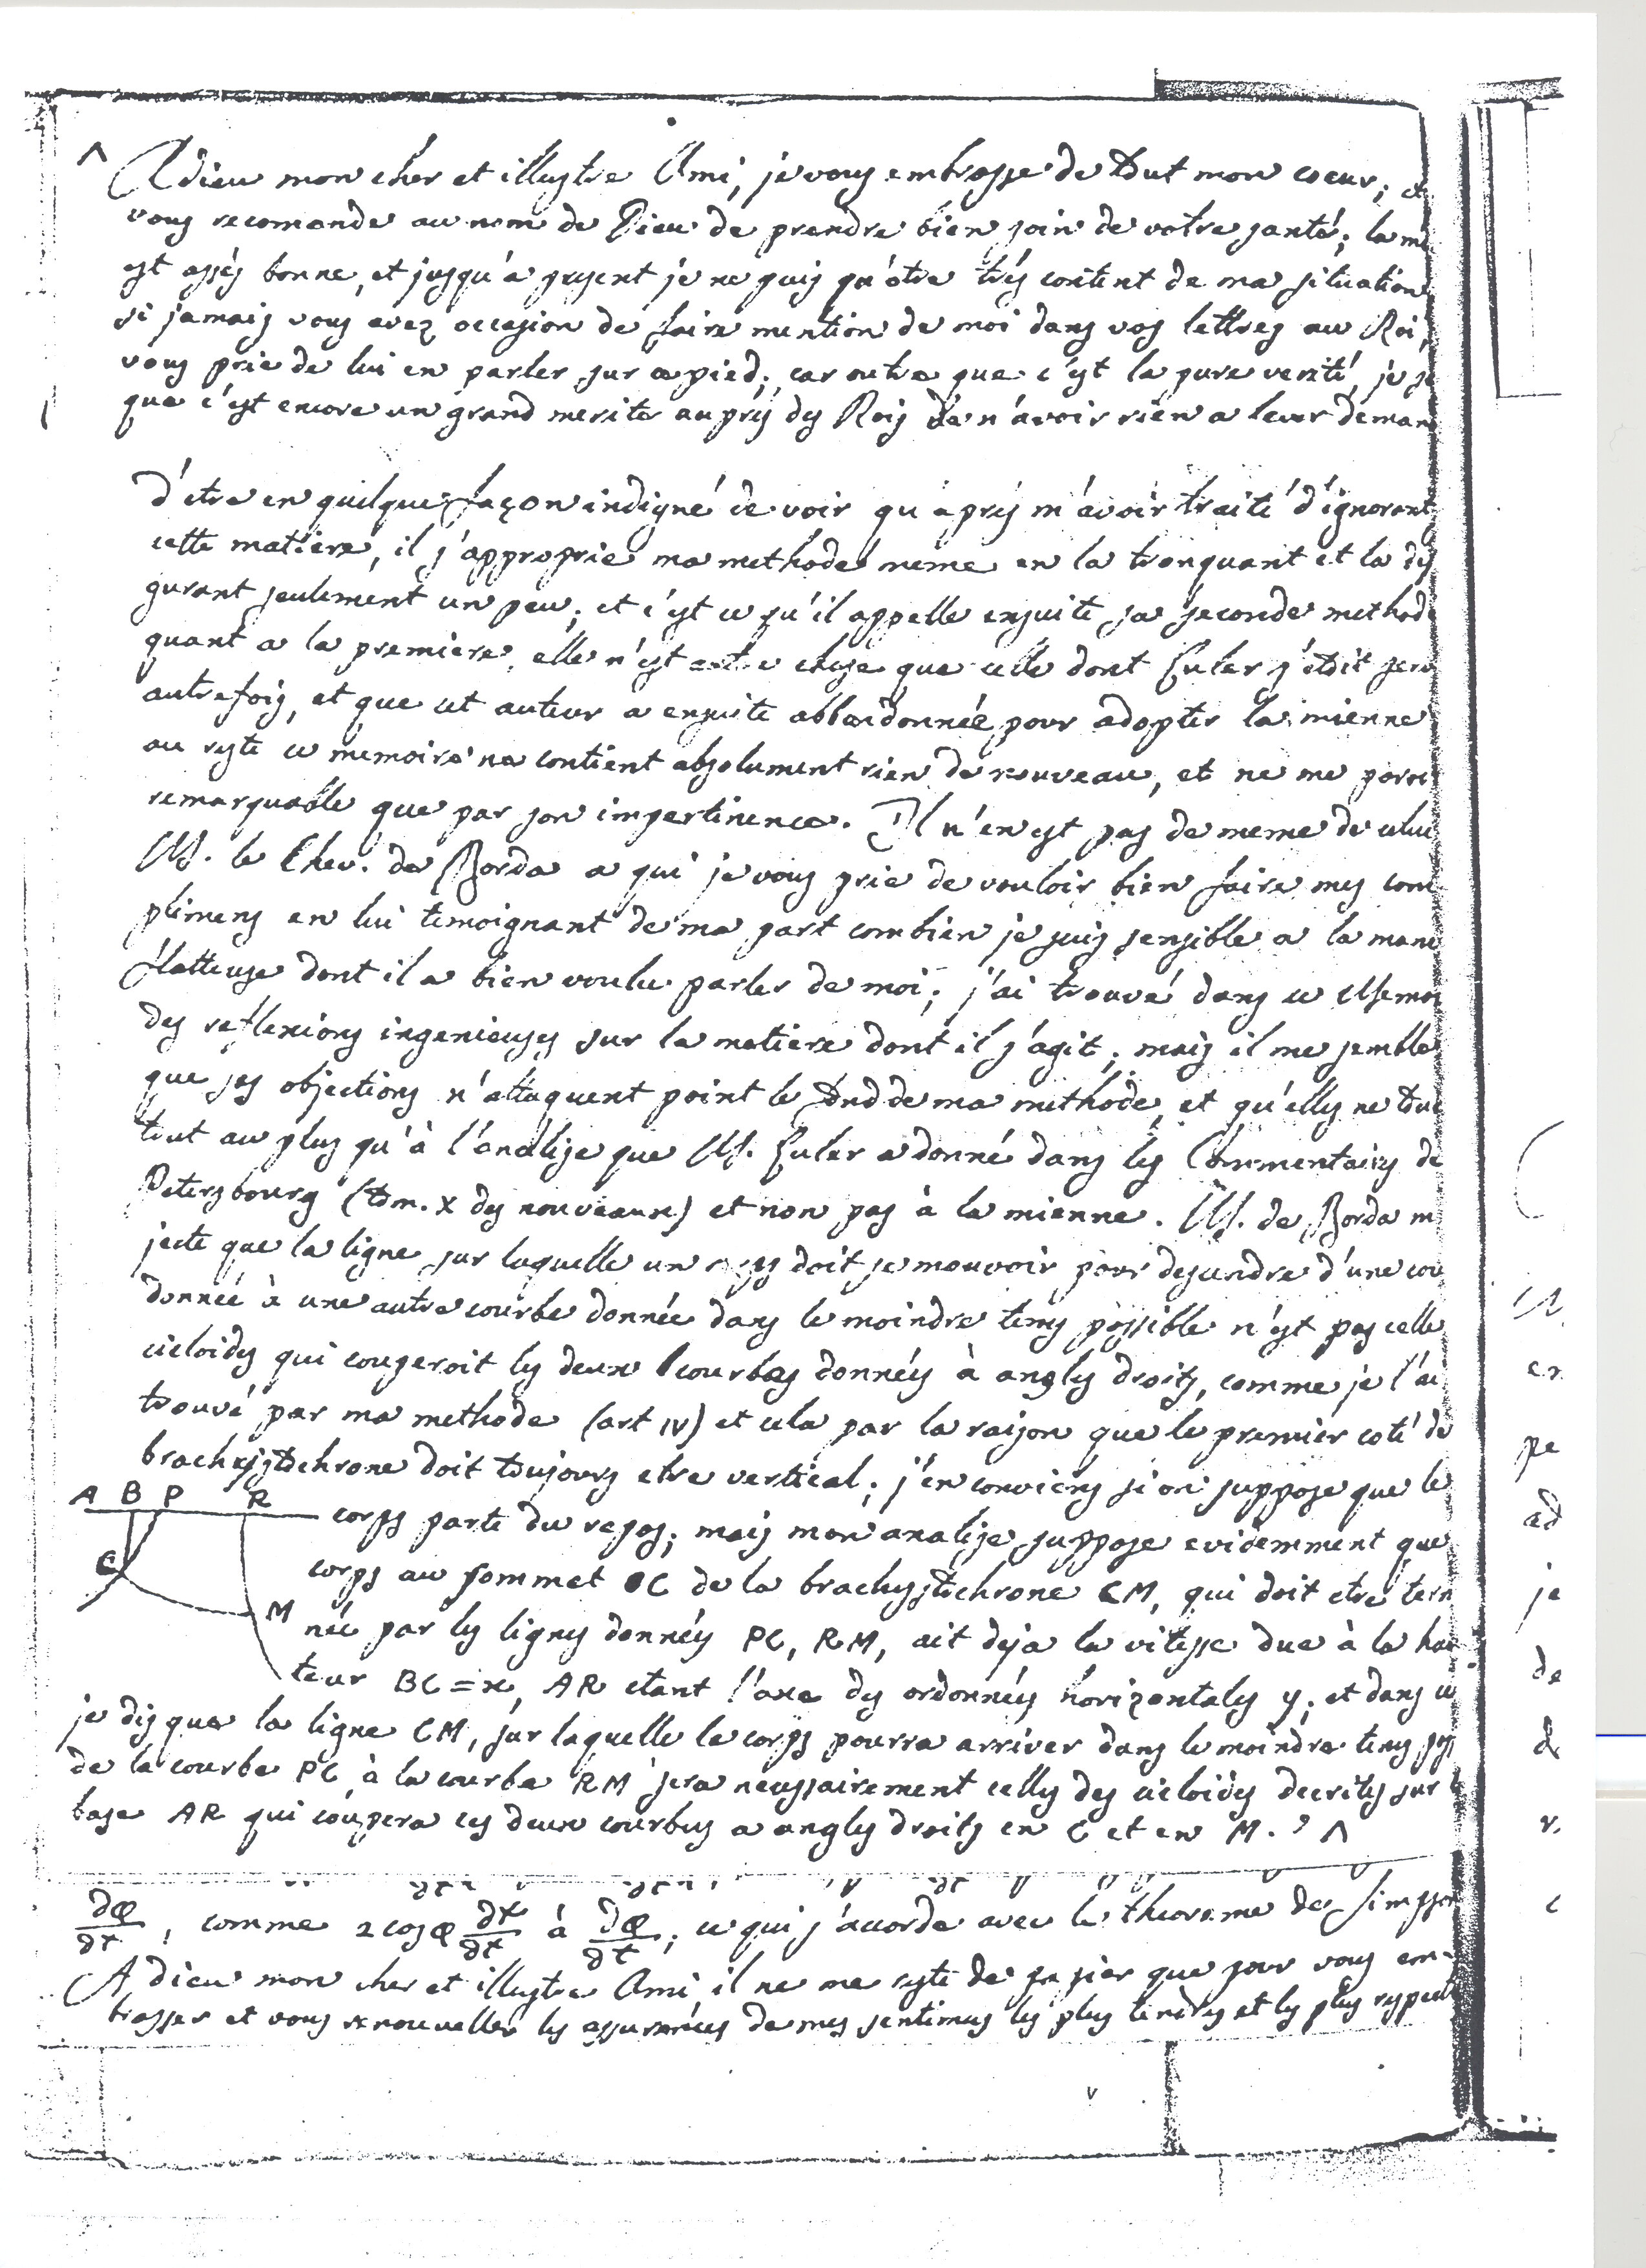 ^ Adieu mon cher et illustre Ami, je vous embrasse de tout mon coeur; et
vous recomande au nom de Dieu de prendre bien soin de votre santé; la mi
est assés bonne, et jusqu'a present je ne puis qu'etre trés content de ma situation
si jamais vous avez occasion de faire mention de moi dans vos lettres au Roi,
vous prie de lui en parler sur ce pied; car outre que c'est la pure verité, je s
que c'est encore un grand merite auprés des Rois de n'avoir rien a leur deman
d'etre en quelque façon indigné de voir qu'aprés m'avoir traité d'ignorant
cette matiere, il s'approprie ma methode meme en la tronquant et la defi
gurant seulement un peu; et c'est ce qu'il appelle ensuite sa seconde method
quant a la premiere, elle n'est autre chose que celle dont Euler s'etoit serv
autrefois, et que cet auteur a ensuite abbandonnée pour adopter la mienne
au reste ce memoire ne contient absolument rien de nouveau, et ne me paroi
remarquable que par son impertinence. Il n'en est pas de meme de celui
M. le Chev. de Borda a qui je vous prie de vouloir bien faire mes com
plimens en lui temoignant de ma part combien je suis sensible a la mani
flatteuse dont il a bien voulu parler de moi; j'ai trouvé dans ce Memoi
des reflexions ingenieuses sur la matiere dont il s'agit; mais il me semble
que ses objections n'attaquent point le fond de ma methode, et qu'elles ne tou
tout au plus qu'à l'analise que M. Euler a donné dans les Commentaires de
Petersbourg (tom. X des nouveaux) et non pas à la mienne. M. de Borda m
jecte que la ligne sur laquelle un corps doit se mouvoir pour descendre d'une cou
donnée à une autre courbe donnée dans le moindre tems possible n'est pas celle
cicloides qui couperoit les deux courbes données à angles droits, comme je l'ai
trouvé par ma methode (art IV) et cela par la raison que le premier coté de
brachystochrone doit toujours etre vertical; j'en conviens si on suppose que le
A B P R
corps parte du repos; mais mon analise suppose evidemment que
C
corps au sommet C de la brachystochrone CM, qui doit etre term
M
née par les lignes données PC, RM, ait deja la vitesse due à la hau
teur BC = x, AR etant l'axe des ordonnées horizontales y; et dans ce
je dis que la ligne CM, sur laquelle le corps pourra arriver dans le moindre tems pos
de la courbe PC à la courbe RM sera necessairement celles des cicloides decrites sur l
base AR qui coupera ces deux courbes a angles droits en C et en M. ^
∂φ/∂t, comme 2 cos φ ∂t/∂t à ∂φ/∂t; ce qui s'accorde avec le theoreme de Simpson
Adieu mon cher et illustre Ami il ne me reste de papier que pour vous em-
brasser et vous renouveller les assurances de mes sentimens les plus tendres et les plus respect